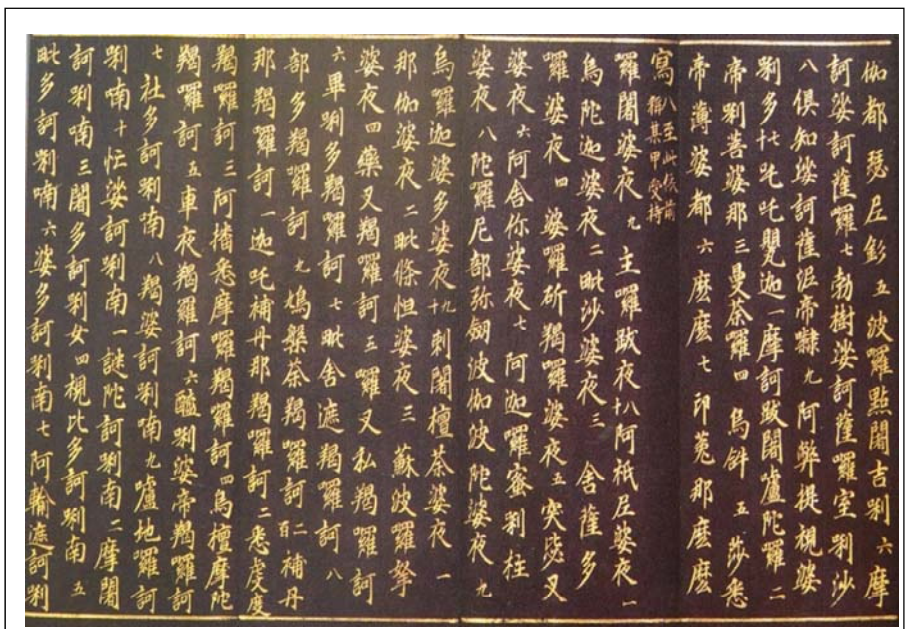 伽都瑟尼釤五波羅點闍吉唎六摩
訶娑訶薩囉七勃樹娑訶薩囉室唎沙
八俱知娑訶薩泥帝㘑九阿弊提視婆
唎多七十吒吒甖迦一摩訶跋闍嚧陀囉二
帝唎菩婆那三曼荼囉四烏𤙖五莎悉
帝薄婆都六麼麼七印兔那麼麼
寫八至此依前稱某甲受持
囉闍婆夜九主囉跋夜八十阿祇尼婆夜一
烏陀迦婆夜二毗沙婆夜三舍薩多
囉婆夜四婆囉斫羯囉婆夜五突瑟叉
婆夜六阿舍你婆夜七阿迦囉蜜唎柱
婆夜八陀囉尼部弥劒波伽波陀婆夜九
烏囉迦婆多婆夜九十剌闍檀荼婆夜一
那伽婆夜二毗條怛婆夜三蘇波囉拏
婆夜四藥叉羯囉訶三囉叉私羯囉訶
六畢唎多羯囉訶七毗舍遮羯囉訶八
部多羯囉訶九鳩槃荼羯囉訶二百補丹
那羯囉訶一迦吒補丹那羯囉訶二悉虔度
羯囉訶三阿播悉摩囉羯囉訶四烏檀摩陀
羯囉訶五車夜羯囉訶六醯唎婆帝羯囉訶
七社多訶唎喃八羯婆訶唎喃九嚧地囉訶
唎喃十忙娑訶唎南一謎陀訶唎南二摩闍
訶唎喃三闍多訶唎女四視比多訶唎南五
毗多訶唎喃六婆多訶唎南七阿輸遮訶唎